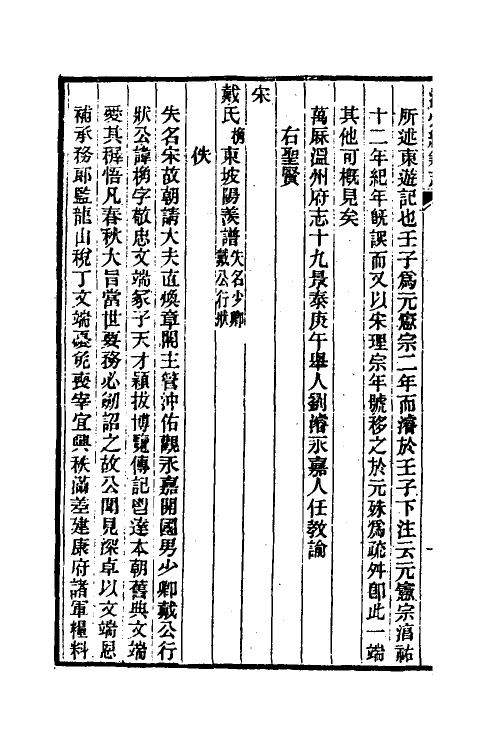 所述東遊記也壬子爲元憲宗二年而濬於壬子下注云元憲宗淯祐
十二年紀年旣誤而又以宋理宗年號移之於元殊爲疏舛卽此一端
其他可概見矣
萬厤溫州府志十九景泰庚午舉人劉濬永嘉人任敎諭
右聖賢
宋
戴氏桷東坡陽羨譜失名少卿戴公行狀
佚
失名宋故朝請大夫直煥章閣主管沖佑觀永嘉開國男少卿戴公行
狀公諱桷字敬忠文端冢子天才穎拔博覽傳記習達本朝舊典文端
愛其穉悟凡春秋大旨當世要務必劬詔之故公聞見深卓以文端恩
補承務郎監龍山稅丁文端憂免喪宰宜興秩滿差建康府諸軍糧料